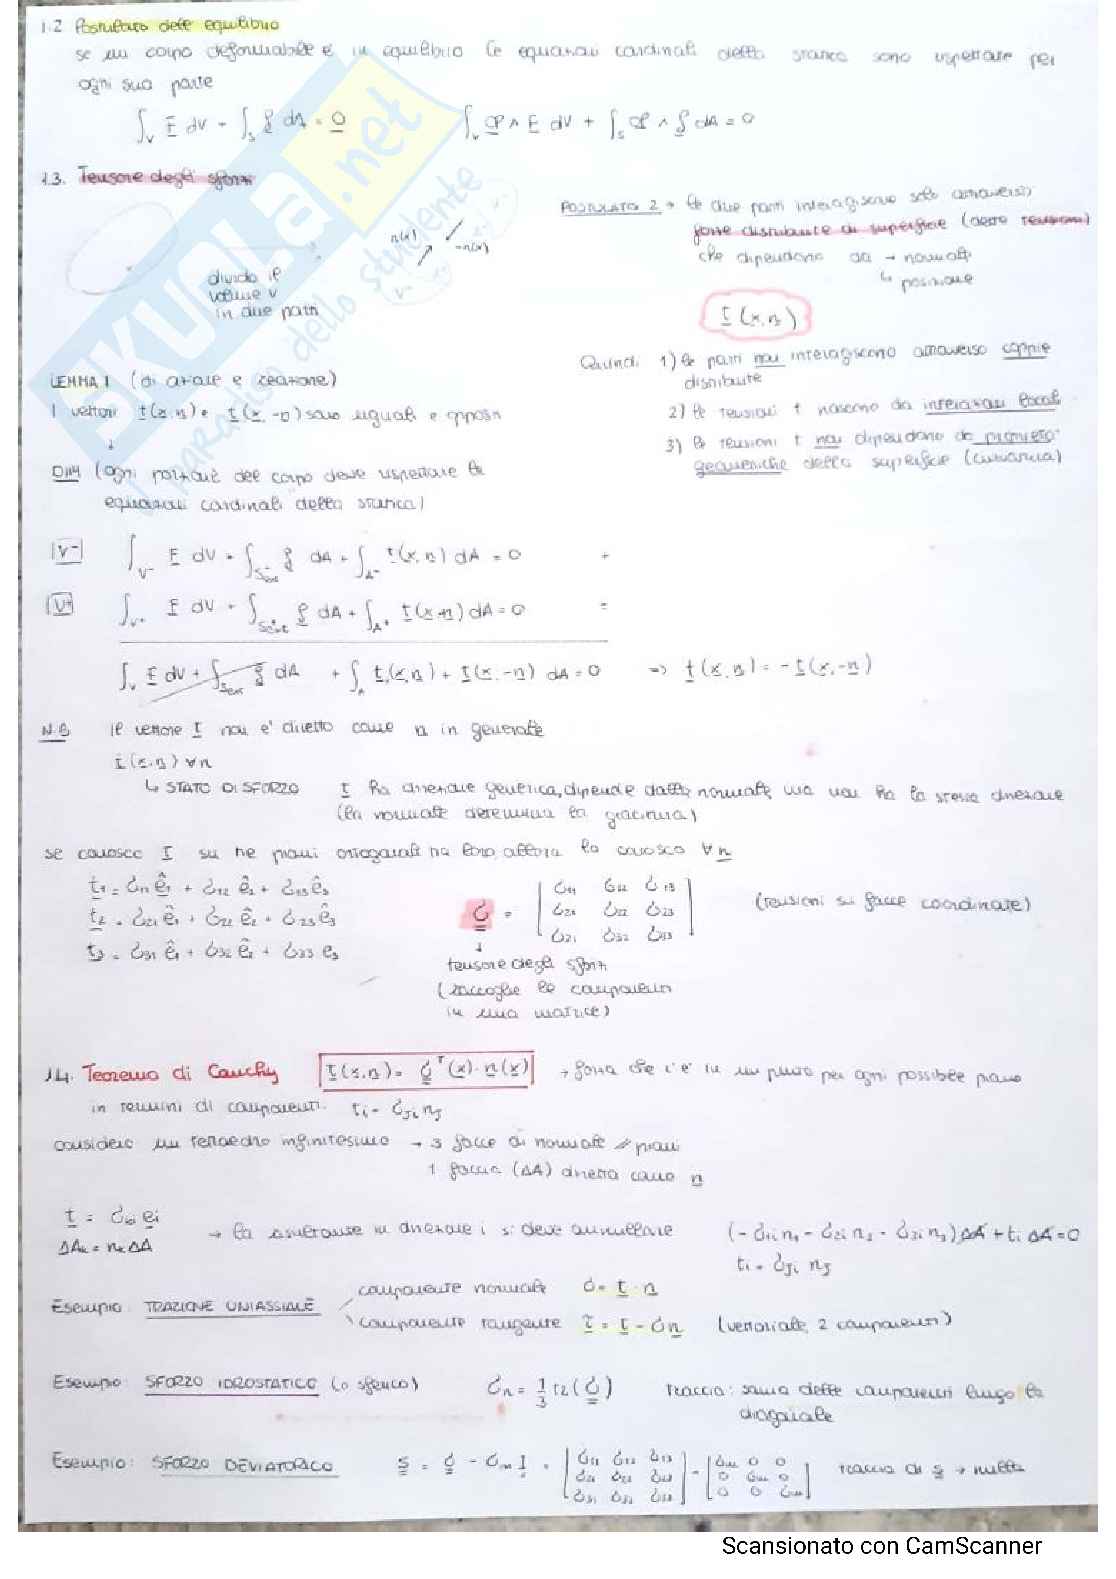 1.2 Postulato dell'equilibrio
se un corpo deformabile è in equilibrio le equazioni cardinali della statica sono rispettate per
ogni sua parte
∫_V F dV + ∫_S f dA = 0    ∫_V OP ∧ F dV + ∫_S OP ∧ f dA = 0
1.3. Tensore degli sforzi
POSTULATO 2 → le due parti interagiscono solo attraverso
forze distribuite di superficie (dette tensioni)
che dipendono da → normale
↳ posizione
n(x)
-n(x)
divido il
volume V
in due parti
t(x,n)
Quindi 1) le parti non interagiscono attraverso coppie
distribuite
2) le tensioni t nascono da interazioni locali
3) le tensioni t non dipendono da proprietà
geometriche della superficie (curvatura)
LEMMA 1 (di azione e reazione)
I vettori t(x,n) e t(x,-n) sono uguali e opposti
↓
DIM (ogni porzione del corpo deve rispettare le
equazioni cardinali della statica)
V- ∫_V- F dV + ∫_S-ext f dA + ∫_A- t(x,n) dA = 0 +
V+ ∫_V+ F dV + ∫_S+ext f dA + ∫_A+ t(x,-n) dA = 0 =
∫_V F dV + ∫_Sext f dA + ∫_A t(x,n) + t(x,-n) dA = 0 => t(x,n) = -t(x,-n)
N.B il vettore t non e' diretto come n in generale
t(x,n) ∀n
↳ STATO DI SFORZO t ha direzione generica, dipende dalla normale ma non ha la stessa direzione
(la normale determina la giacitura)
se conosco t su tre piani ortogonali tra loro, allora lo conosco ∀n
t1 = σ11 ê1 + σ12 ê2 + σ13 ê3
t2 = σ21 ê1 + σ22 ê2 + σ23 ê3
t3 = σ31 ê1 + σ32 ê2 + σ33 e3
σ = [σ11 σ12 σ13
σ21 σ22 σ23
σ31 σ32 σ33]
(tensioni su facce coordinate)
↓
tensore degli sforzi
(raccoglie le componenti
in una matrice)
1.4. Teorema di Cauchy t(x,n) = σ^T(x)·n(x) → forza che c'è in un punto per ogni possibile piano
in termini di componenti: ti = σji nj
considero un tetraedro infinitesimo → 3 facce di normale // piani
1 faccia (ΔA) diretta come n
t = σki ei
ΔAk = nk ΔA
→ la risultante in direzione i si deve annullare (-σ1i n1 - σ2i n2 - σ3i n3) ΔA + ti ΔA = 0
ti = σji nj
Esempio: TRAZIONE UNIASSIALE
componente normale σ = t · n
componente tangente τ = t - σn (vettoriale, 2 componenti)
Esempio: SFORZO IDROSTATICO (o sferico) σm = 1/3 tr(σ) traccia: somma delle componenti lungo la
diagonale
Esempio: SFORZO DEVIATORICO s = σ - σm I = [σ11 σ12 σ13 σ21 σ22 σ23 σ31 σ32 σ33] - [σm 0 0 0 σm 0 0 0 σm] traccia di s → nulla
SKUOLA.net
il paradiso dello studente
Scansionato con CamScanner